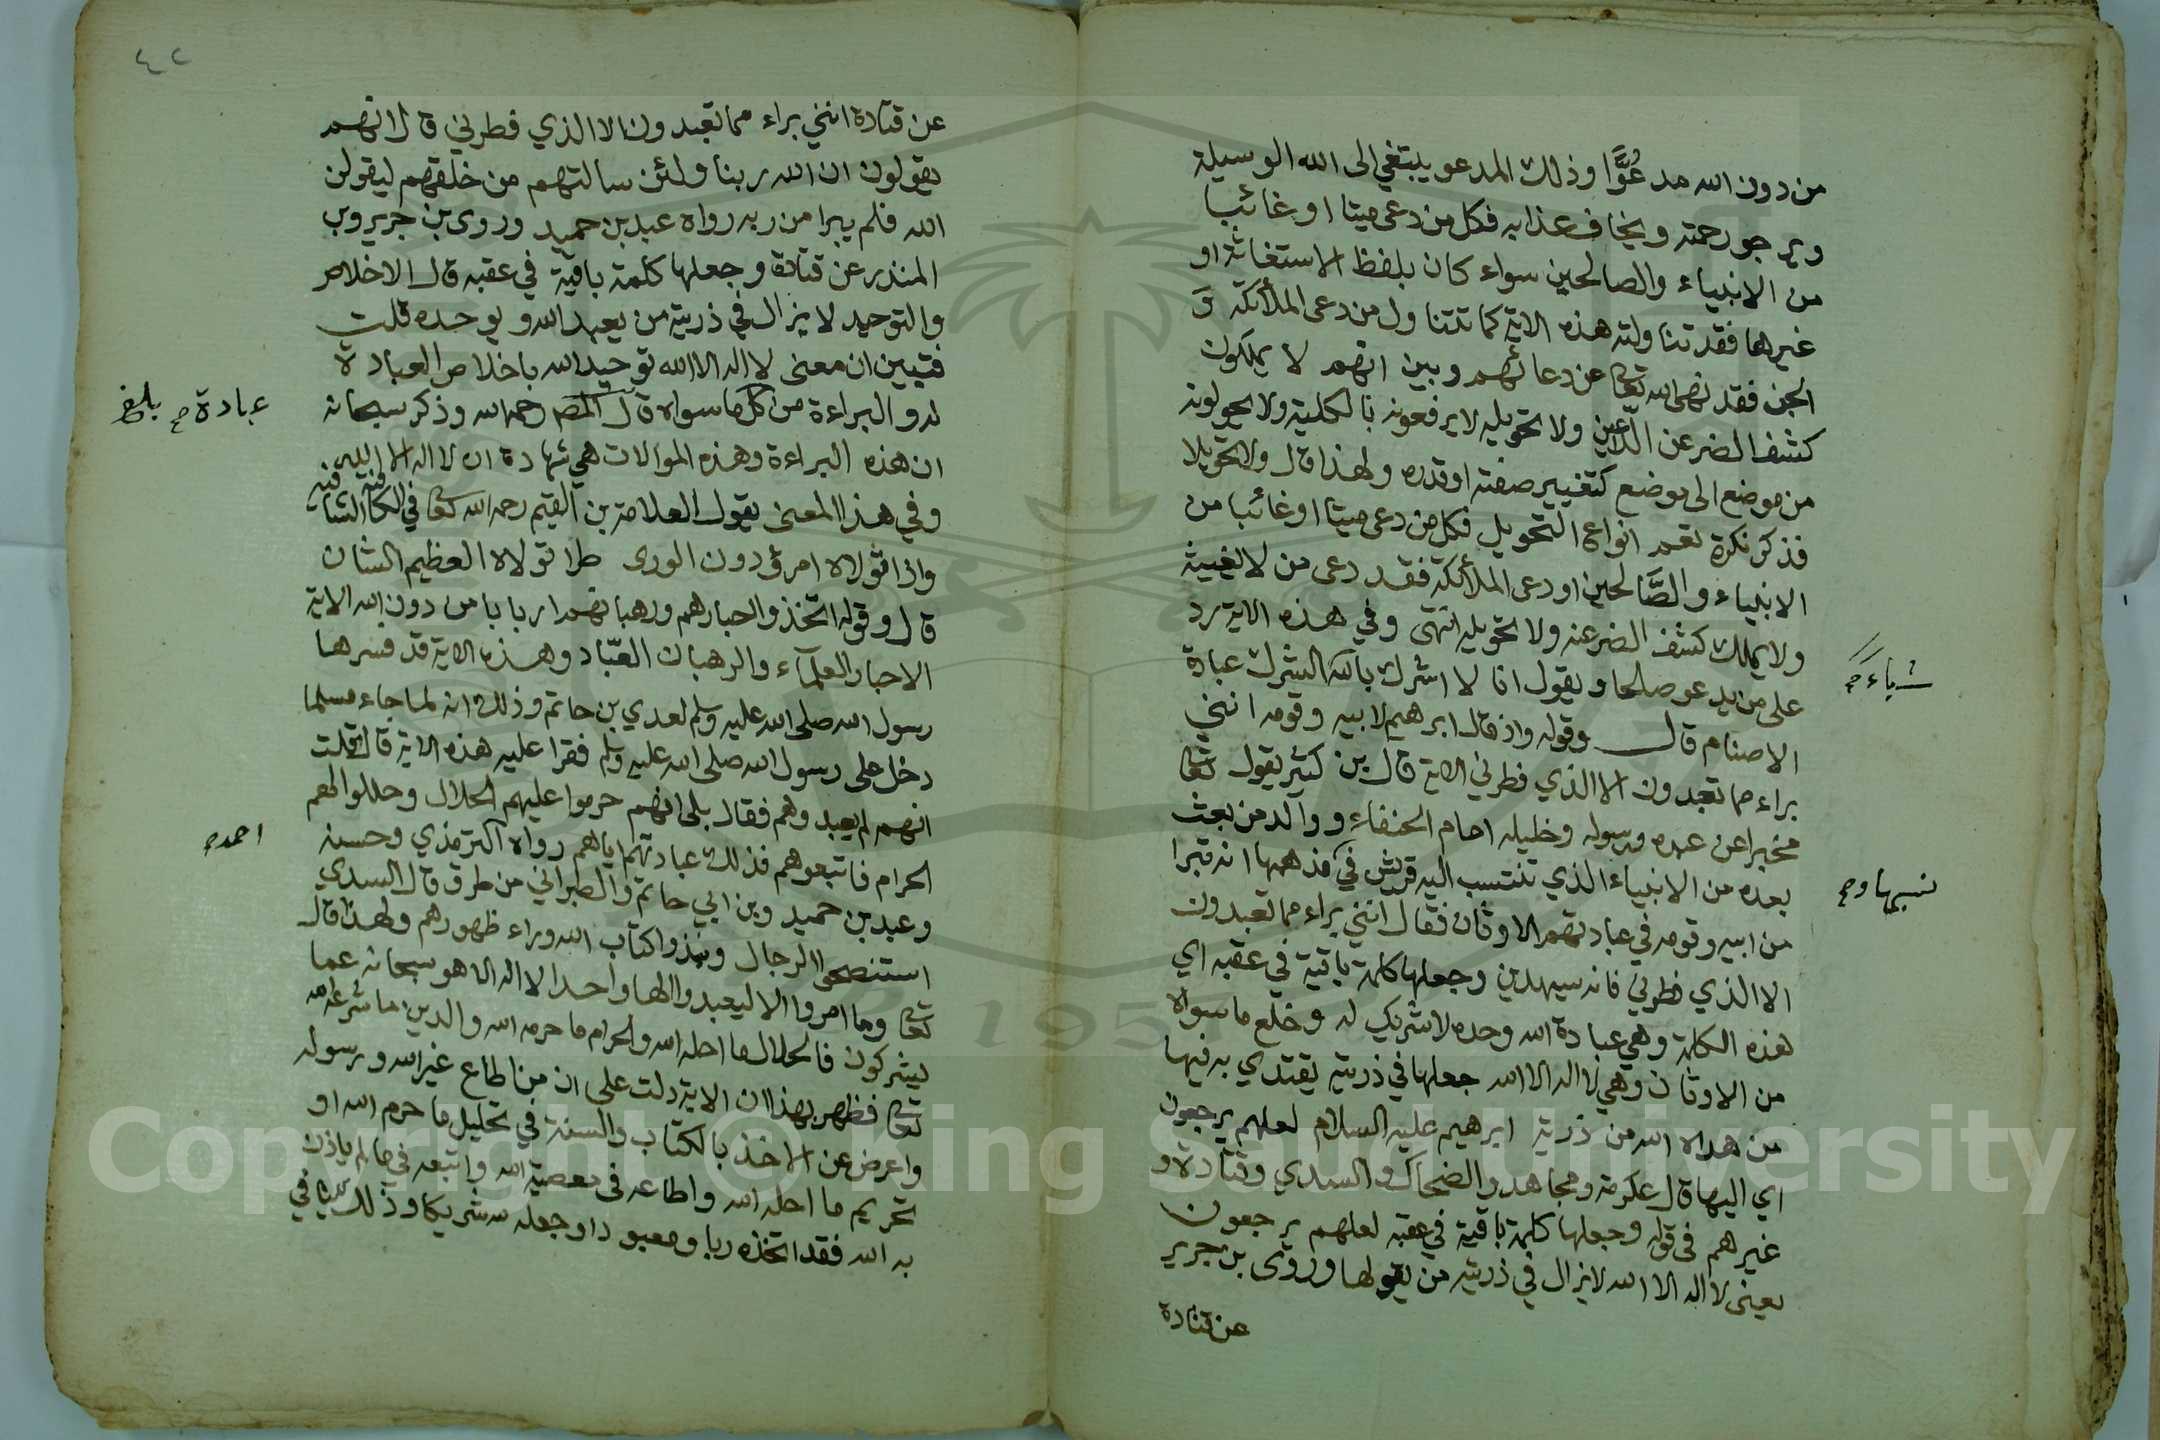 من دون الله مدعُوًّا وذلك المدعو يبتغي الى الله الوسيلة
ويرجو رحمته ويخاف عذابه فكل من دعى ميتا او غائبا
من الانبياء والصالحين سواء كان بلفظ الاستغاثة او
غيرها فقد تناولته هذه الاية كما تتناول من دعى الملائكة وَ
الجن فقد نهى الله تعا عن دعائهم وبين انهم لا يملكون
كشف الضر عن الدّاعين ولا تحويله لا يرفعونه بالكلية ولا يحولونه
من موضع الى موضع كتغيير صفته او قدره ولهذا قال ولا تحويلا
فذكر نكرة تعم انواع التحويل فكل من دعى ميتا او غائبا من
الانبياء والصَّالحين او دعى الملائكة فقد دعى من لا يغيثه
ولا يملك كشف الضر عنه ولا تحويله انتهى وفي هذه الاية رد
على من يدعو صلحا ويقول انا لا اشرك بالله الشرك عبادة
شياء
الاصنام قال وقوله واذ قال ابرهيم لابيه وقومه انني
براء مما تعبدون الا الذي فطرني الاية قال بن كثير يقول تعا
مخبرا عن عبده ورسوله وخليله امام الحنفاء ووالد من بعث
بعده من الانبياء الذي تنتسب اليه قريش في مذهبها انه تبرا
نسبها و
من ابيه وقومه في عبادتهم الاوثان فقال انني براء مما تعبدون
الا الذي فطرني فانه سيهدين وجعلها كلمة باقية في عقبه اي
هذه الكلمة وهي عبادة الله وحده لا شريك له وخلع ما سواه
من الاوثان وهي لا اله الا الله جعلها في ذريته يقتدي به فيها
من هداه الله من ذرية ابرهيم عليه السلام لعلهم يرجعون
اي اليها قال عكرمة ومجاهد والضحاك والسدي وقتادة و
غيرهم في قوله وجعلها كلمة باقية في عقبه لعلهم يرجعون
يعني لا اله الا الله لا يزال في ذريته من يقولها وروى بن جرير
عن قتادة
٤٢
عن قتادة انني براء مما تعبدون الا الذي فطرني قال انهم
يقولون ان الله ربنا ولئن سالتهم من خلقهم ليقولن
الله فلم يبرا من ربه رواه عبد بن حميد وروى بن جرير وبن
المنذر عن قتادة وجعلها كلمة باقية في عقبه قال الاخلاص
والتوحيد لا يزال في ذريته من يعبد الله ويوحده قلت
فتبين ان معنى لا اله الا الله توحيد الله باخلاص العبادة
له والبراءة من كل ما سواه قال المص رحمه الله وذكر سبحانه
عبادة بلغ
ان هذه البراءة وهذه الموالات هي شهادة ان لا اله الا الله
وفي هذا المعنى يقول العلامة بن القيم رحمه الله تعا في الكافية الشافية
واذا تولاه امرؤ دون الورى طرا تولاه العظيم الشان
قال وقوله اتخذوا احبارهم ورهبانهم اربابا من دون الله الاية
الاحبار العلمآء والرهبان العبّاد وهذه الاية قد فسرها
رسول الله صلى الله عليه وسلم لعدي بن حاتم وذلك انه لما جاء مسلما
دخل على رسول الله صلى الله عليه وسلم فقرا عليه هذه الاية قال فقلت
انهم لم يعبدوهم فقال بلى انهم حرموا عليهم الحلال وحللوا لهم
الحرام فاتبعوهم فذلك عبادتهم اياهم رواه الترمذي وحسنه
احمد
وعبد بن حميد وبن ابي حاتم والطبراني من طرق قال السدي
استنصحوا الرجال ونبذوا كتاب الله وراء ظهورهم ولهذا قال
تعا وما امروا الا ليعبدوا الها واحدا لا اله الا هو سبحانه عما
يشركون فالحلال ما احله الله والحرام ما حرمه الله والدين ما شرعه الله
تعا فظهر بهذا ان الاية دلت على ان من اطاع غير الله ورسوله
واعرض عن الاخذ بالكتاب والسنة في تحليل ما حرم الله او
تحريم ما احله الله واطاعه في معصية الله واتبعه في ما لم ياذن
به الله فقد اتخذه ربا ومعبودا وجعله لله شريكا وذلك ينافي
Copyright © King Saud University
1957